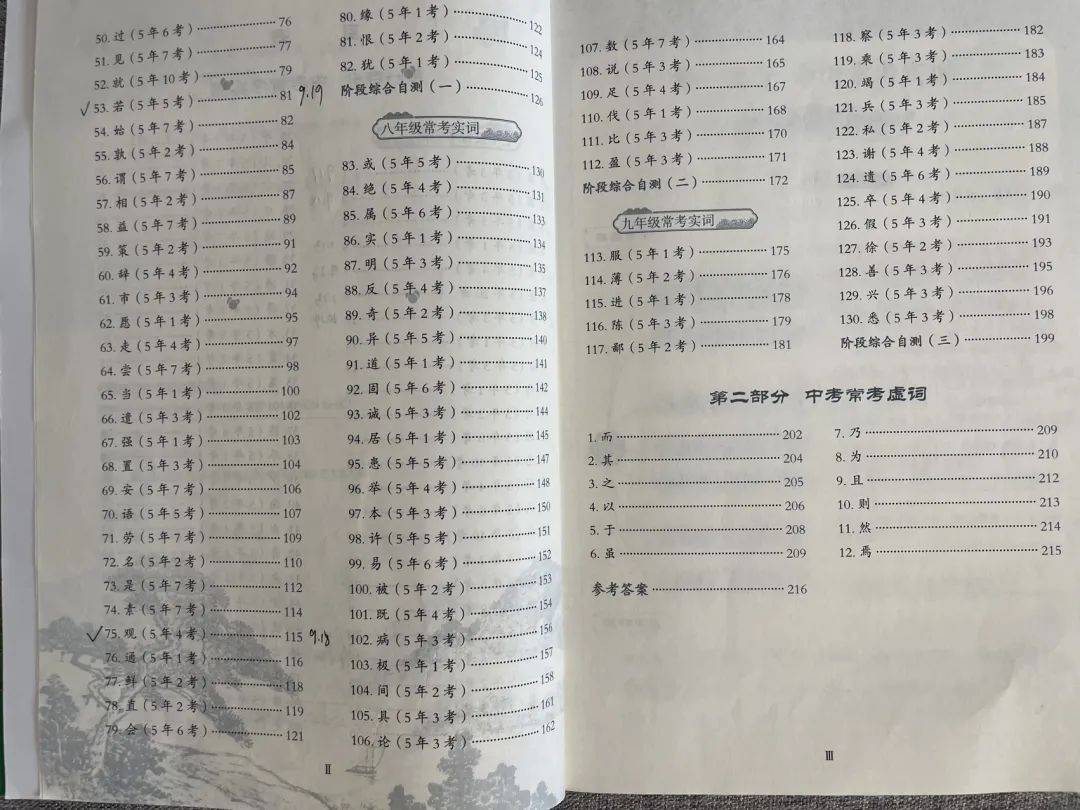 50. 过(5年6考)……76
51. 见(5年7考)……77
52. 就(5年10考)……79
✓53. 若(5年5考)……81 9.19
54. 始(5年7考)……82
55. 孰(5年2考)……84
56. 谓(5年7考)……85
57. 相(5年2考)……87
58. 益(5年7考)……89
59. 策(5年2考)……91
60. 辞(5年4考)……92
61. 市(5年3考)……94
62. 愿(5年1考)……95
63. 走(5年4考)……97
64. 尝(5年7考)……98
65. 当(5年1考)……100
66. 遣(5年3考)……102
67. 强(5年1考)……103
68. 置(5年3考)……104
69. 安(5年7考)……106
70. 语(5年5考)……107
71. 劳(5年7考)……109
72. 名(5年2考)……110
73. 是(5年7考)……112
74. 素(5年7考)……114
✓75. 观(5年4考)……115 9.18
76. 通(5年1考)……116
77. 鲜(5年2考)……118
78. 直(5年2考)……119
79. 会(5年6考)……121
80. 缘(5年1考)……122
81. 恨(5年2考)……124
82. 犹(5年1考)……125
阶段综合自测(一)……126
八年级常考实词
83. 或(5年5考)……130
84. 绝(5年4考)……131
85. 属(5年6考)……133
86. 实(5年1考)……134
87. 明(5年3考)……135
88. 反(5年4考)……137
89. 奇(5年2考)……138
90. 异(5年5考)……140
91. 道(5年1考)……141
92. 固(5年6考)……142
93. 诚(5年3考)……144
94. 居(5年1考)……145
95. 患(5年5考)……147
96. 举(5年4考)……148
97. 本(5年3考)……150
98. 许(5年5考)……151
99. 易(5年6考)……152
100. 被(5年2考)……153
101. 既(5年4考)……154
102. 病(5年3考)……156
103. 极(5年1考)……157
104. 间(5年2考)……158
105. 具(5年3考)……161
106. 论(5年3考)……162
Ⅱ
107. 数(5年7考)……164
108. 说(5年3考)……165
109. 足(5年4考)……167
110. 伐(5年1考)……168
111. 比(5年3考)……170
112. 盈(5年3考)……171
阶段综合自测(二)……172
九年级常考实词
113. 服(5年1考)……175
114. 薄(5年2考)……176
115. 进(5年1考)……178
116. 陈(5年3考)……179
117. 鄙(5年2考)……181
118. 察(5年3考)……182
119. 乘(5年3考)……183
120. 竭(5年1考)……184
121. 兵(5年3考)……185
122. 私(5年2考)……187
123. 谢(5年4考)……188
124. 遗(5年6考)……189
125. 卒(5年4考)……190
126. 假(5年3考)……191
127. 徐(5年2考)……193
128. 善(5年3考)……195
129. 兴(5年3考)……196
130. 悉(5年3考)……198
阶段综合自测(三)……199
第二部分 中考常考虚词
1. 而……202
2. 其……204
3. 之……205
4. 以……206
5. 于……208
6. 虽……209
7. 乃……209
8. 为……210
9. 且……212
10. 则……213
11. 然……214
12. 焉……215
参考答案……216
Ⅲ